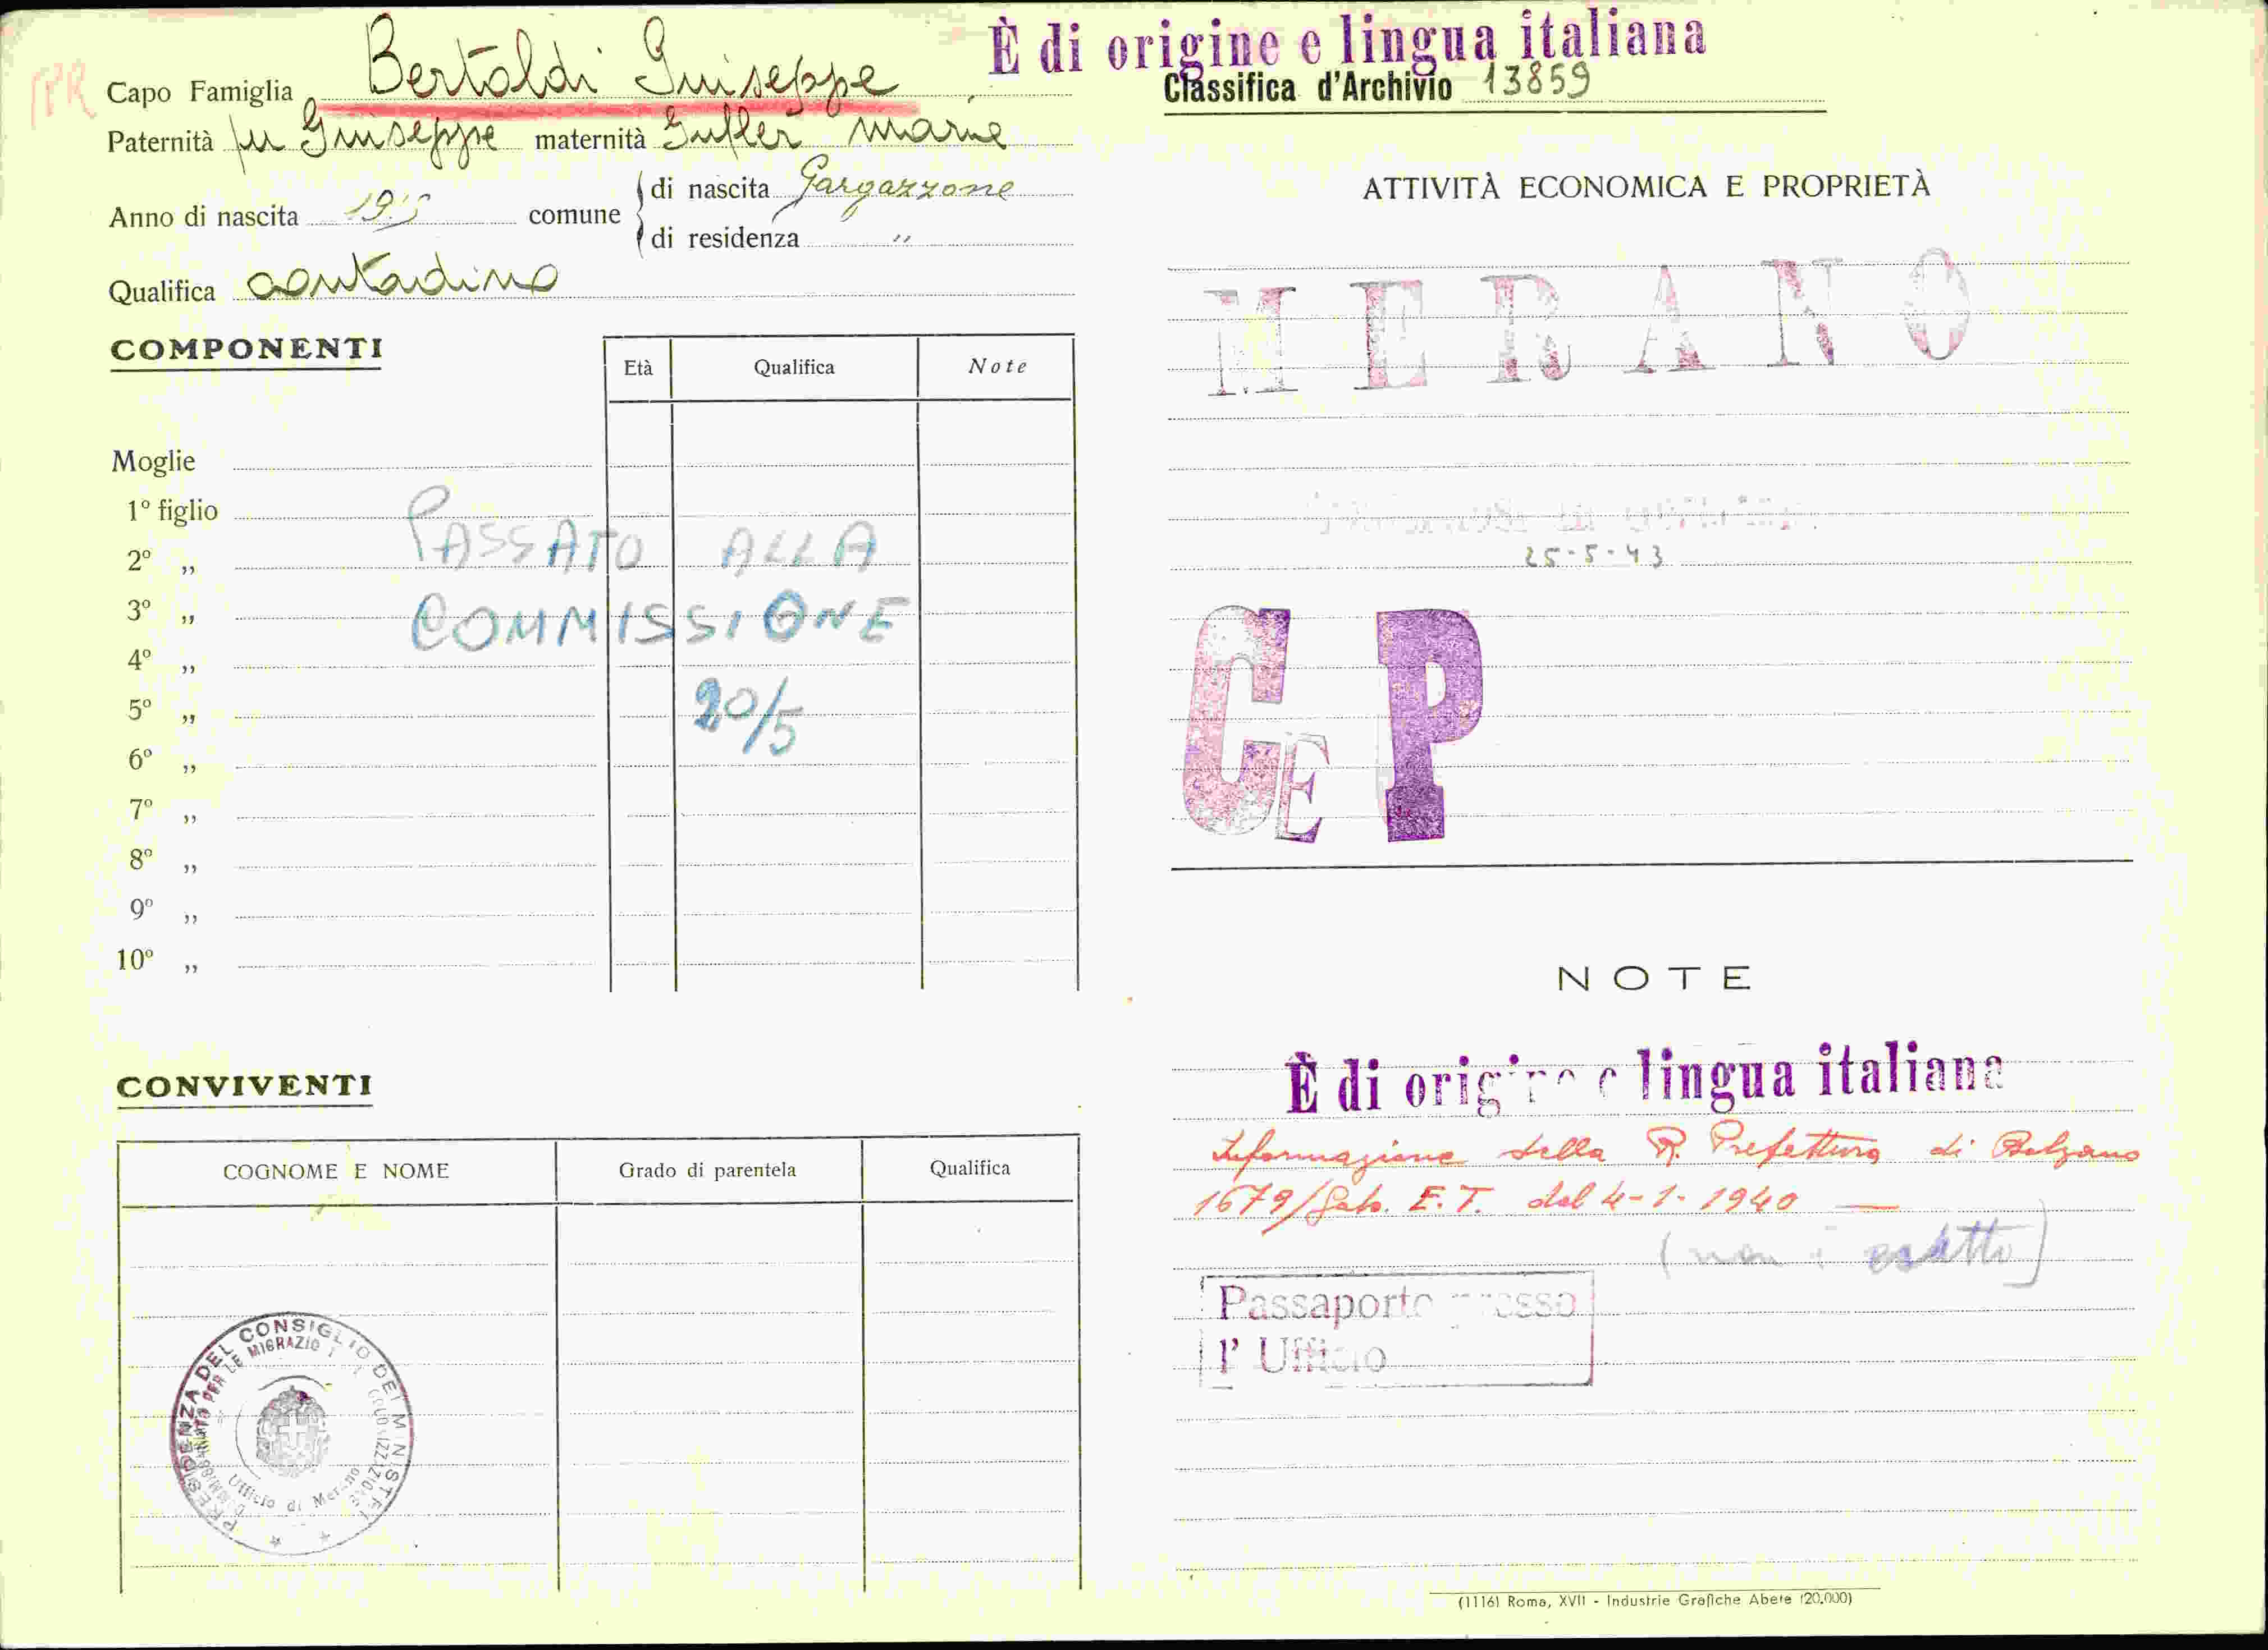 È di origine e lingua italiana
PR
Capo Famiglia Bertoldi Giuseppe
Classifica d'Archivio 13859
Paternità fu Giuseppe maternità Gufler Marie
Anno di nascita comune
di nascita Gargazzone
di residenza "
Qualifica contadino
COMPONENTI
Età Qualifica Note
Moglie
1º figlio
2º „
3º „
4º „
5º „
6º „
7º „
8º „
9º „
10º „
PASSATO ALLA
COMMISSIONE
20/5
CONVIVENTI
COGNOME E NOME Grado di parentela Qualifica
PRESIDENZA DEL CONSIGLIO DEI MINISTRI
Ufficio di Merano
ATTIVITÀ ECONOMICA E PROPRIETÀ
MERANO
25-5-43
CE P
NOTE
È di origine e lingua italiana
Informazione della R. Prefettura di Bolzano
1679/Gab. E.T. del 4-1-1940
(non è esatto)
Passaporto presso
l' Ufficio
(1116) Roma, XVII - Industrie Grafiche Abete (20.000)